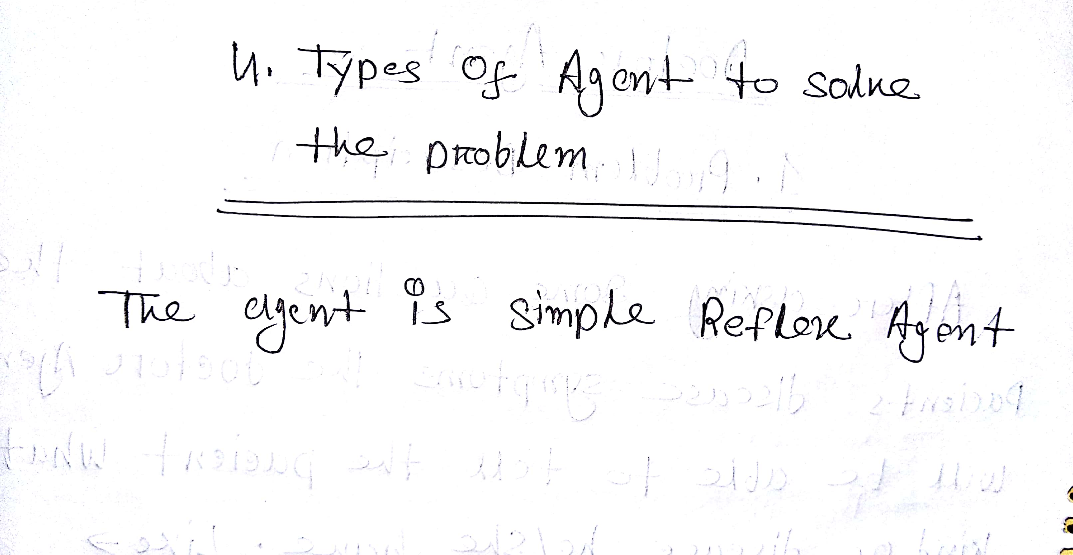 4. Types Of Agent to solve
the problem
The agent is simple Reflex Agent